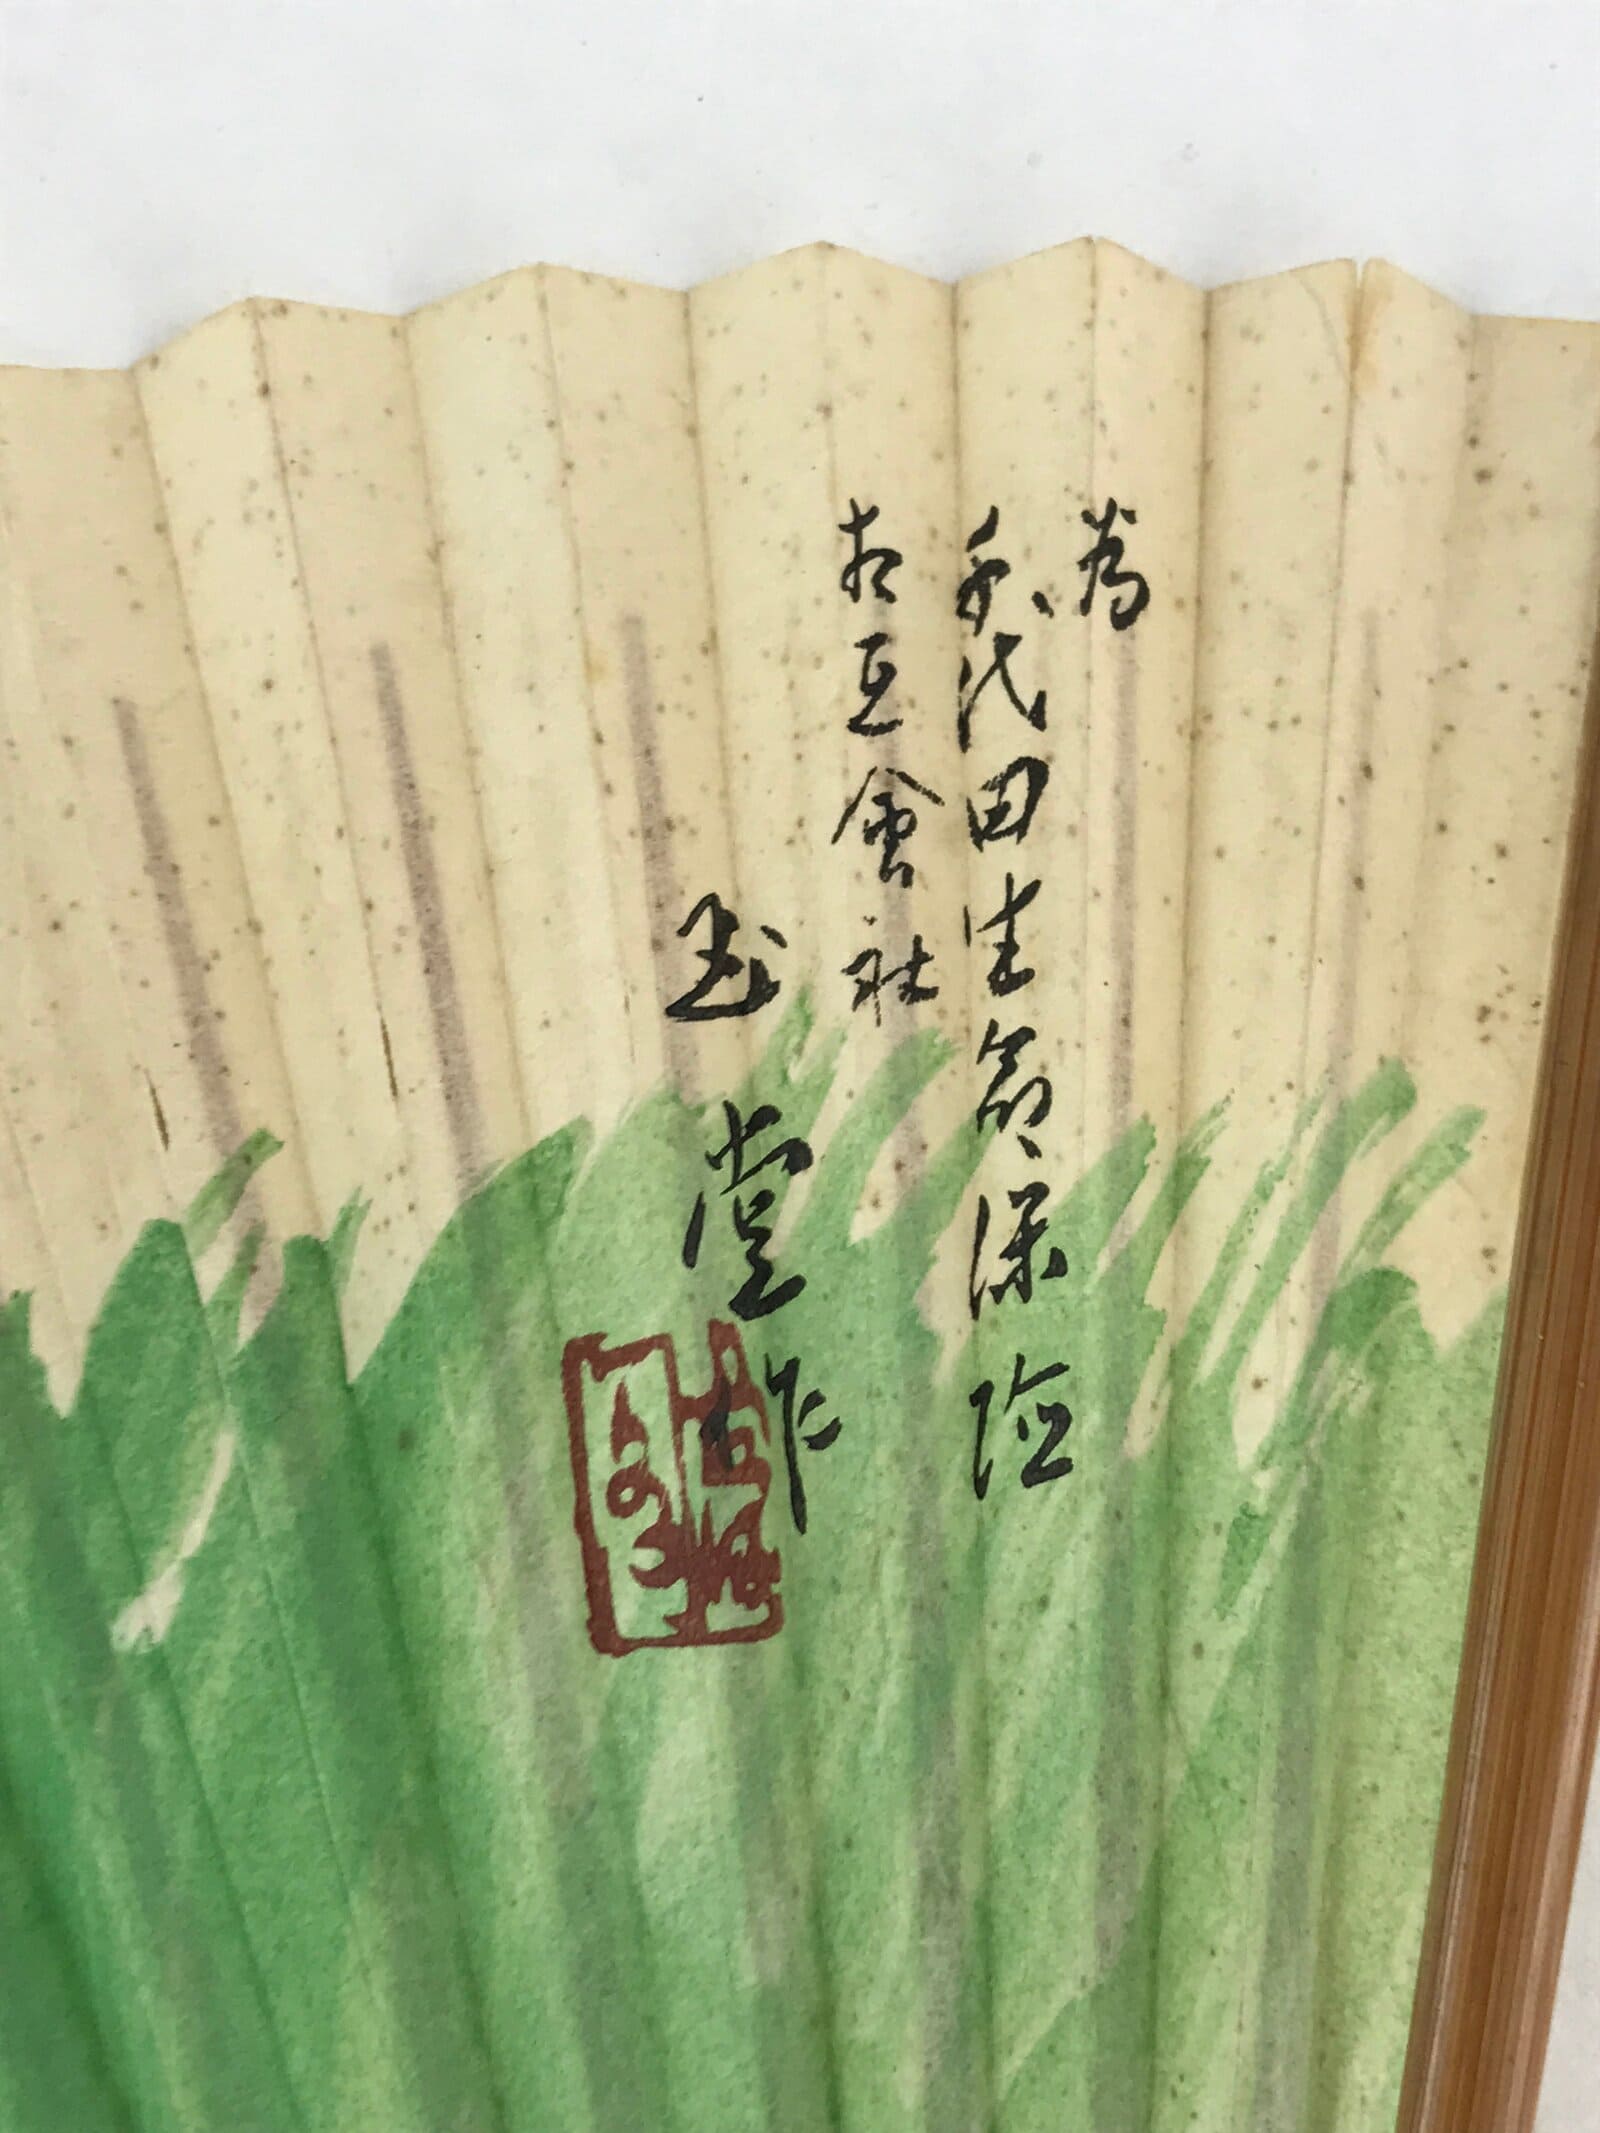 為
千代田生命保険
相互會社
玉堂作